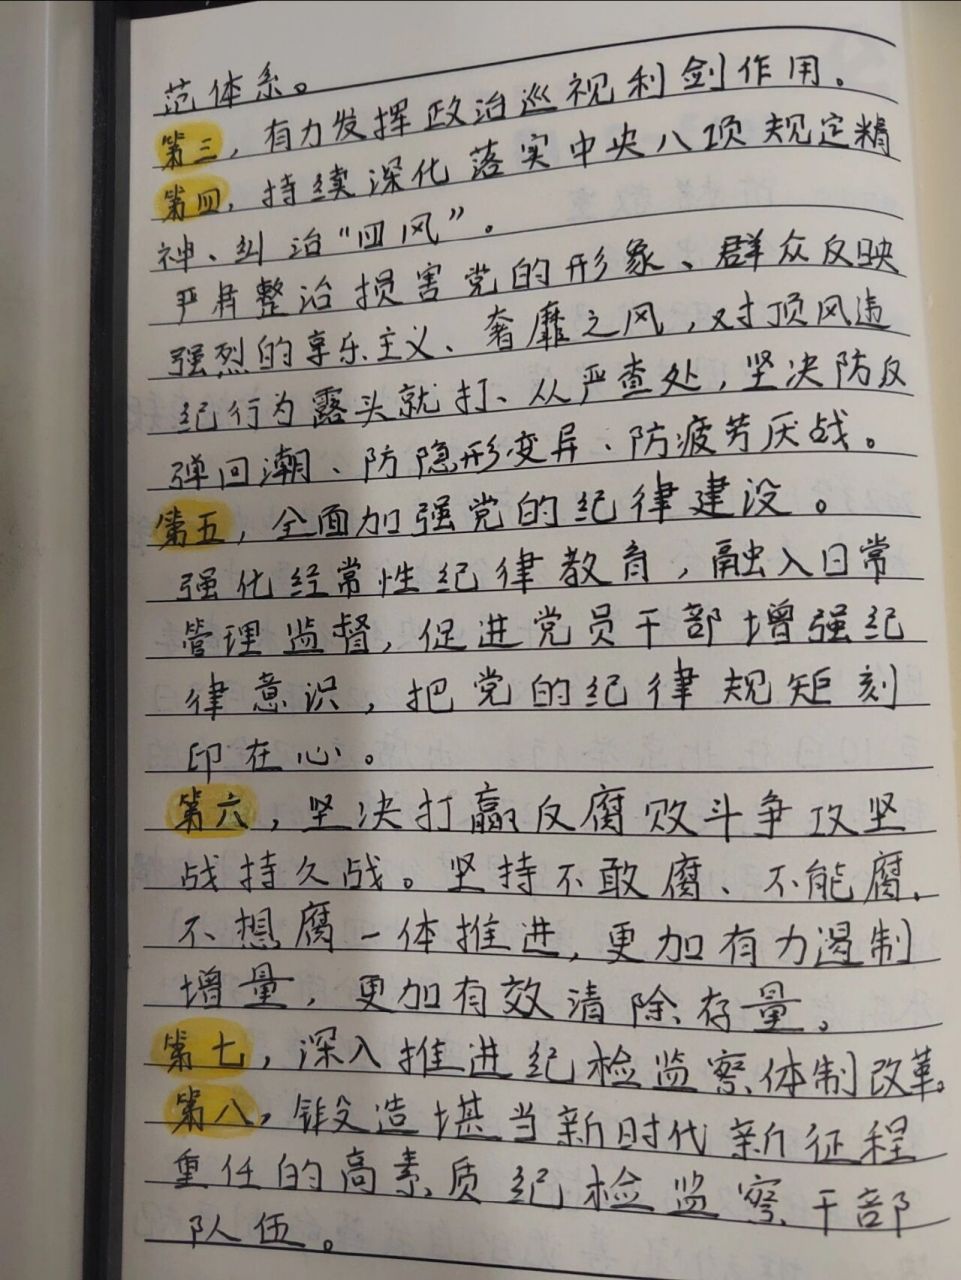 范体系。
第三，有力发挥政治巡视利剑作用。
第四，持续深化落实中央八项规定精
神、纠治“四风”。
严肃整治损害党的形象、群众反映
强烈的享乐主义、奢靡之风，对顶风违
纪行为露头就打、从严查处，坚决防反
弹回潮、防隐形变异、防疲劳厌战。
第五，全面加强党的纪律建设。
强化经常性纪律教育，融入日常
管理监督，促进党员干部增强纪
律意识，把党的纪律规矩刻
印在心。
第六，坚决打赢反腐败斗争攻坚
战持久战。坚持不敢腐、不能腐、
不想腐一体推进，更加有力遏制
增量，更加有效清除存量。
第七，深入推进纪检监察体制改革。
第八，锻造堪当新时代新征程
重任的高素质纪检监察干部
队伍。